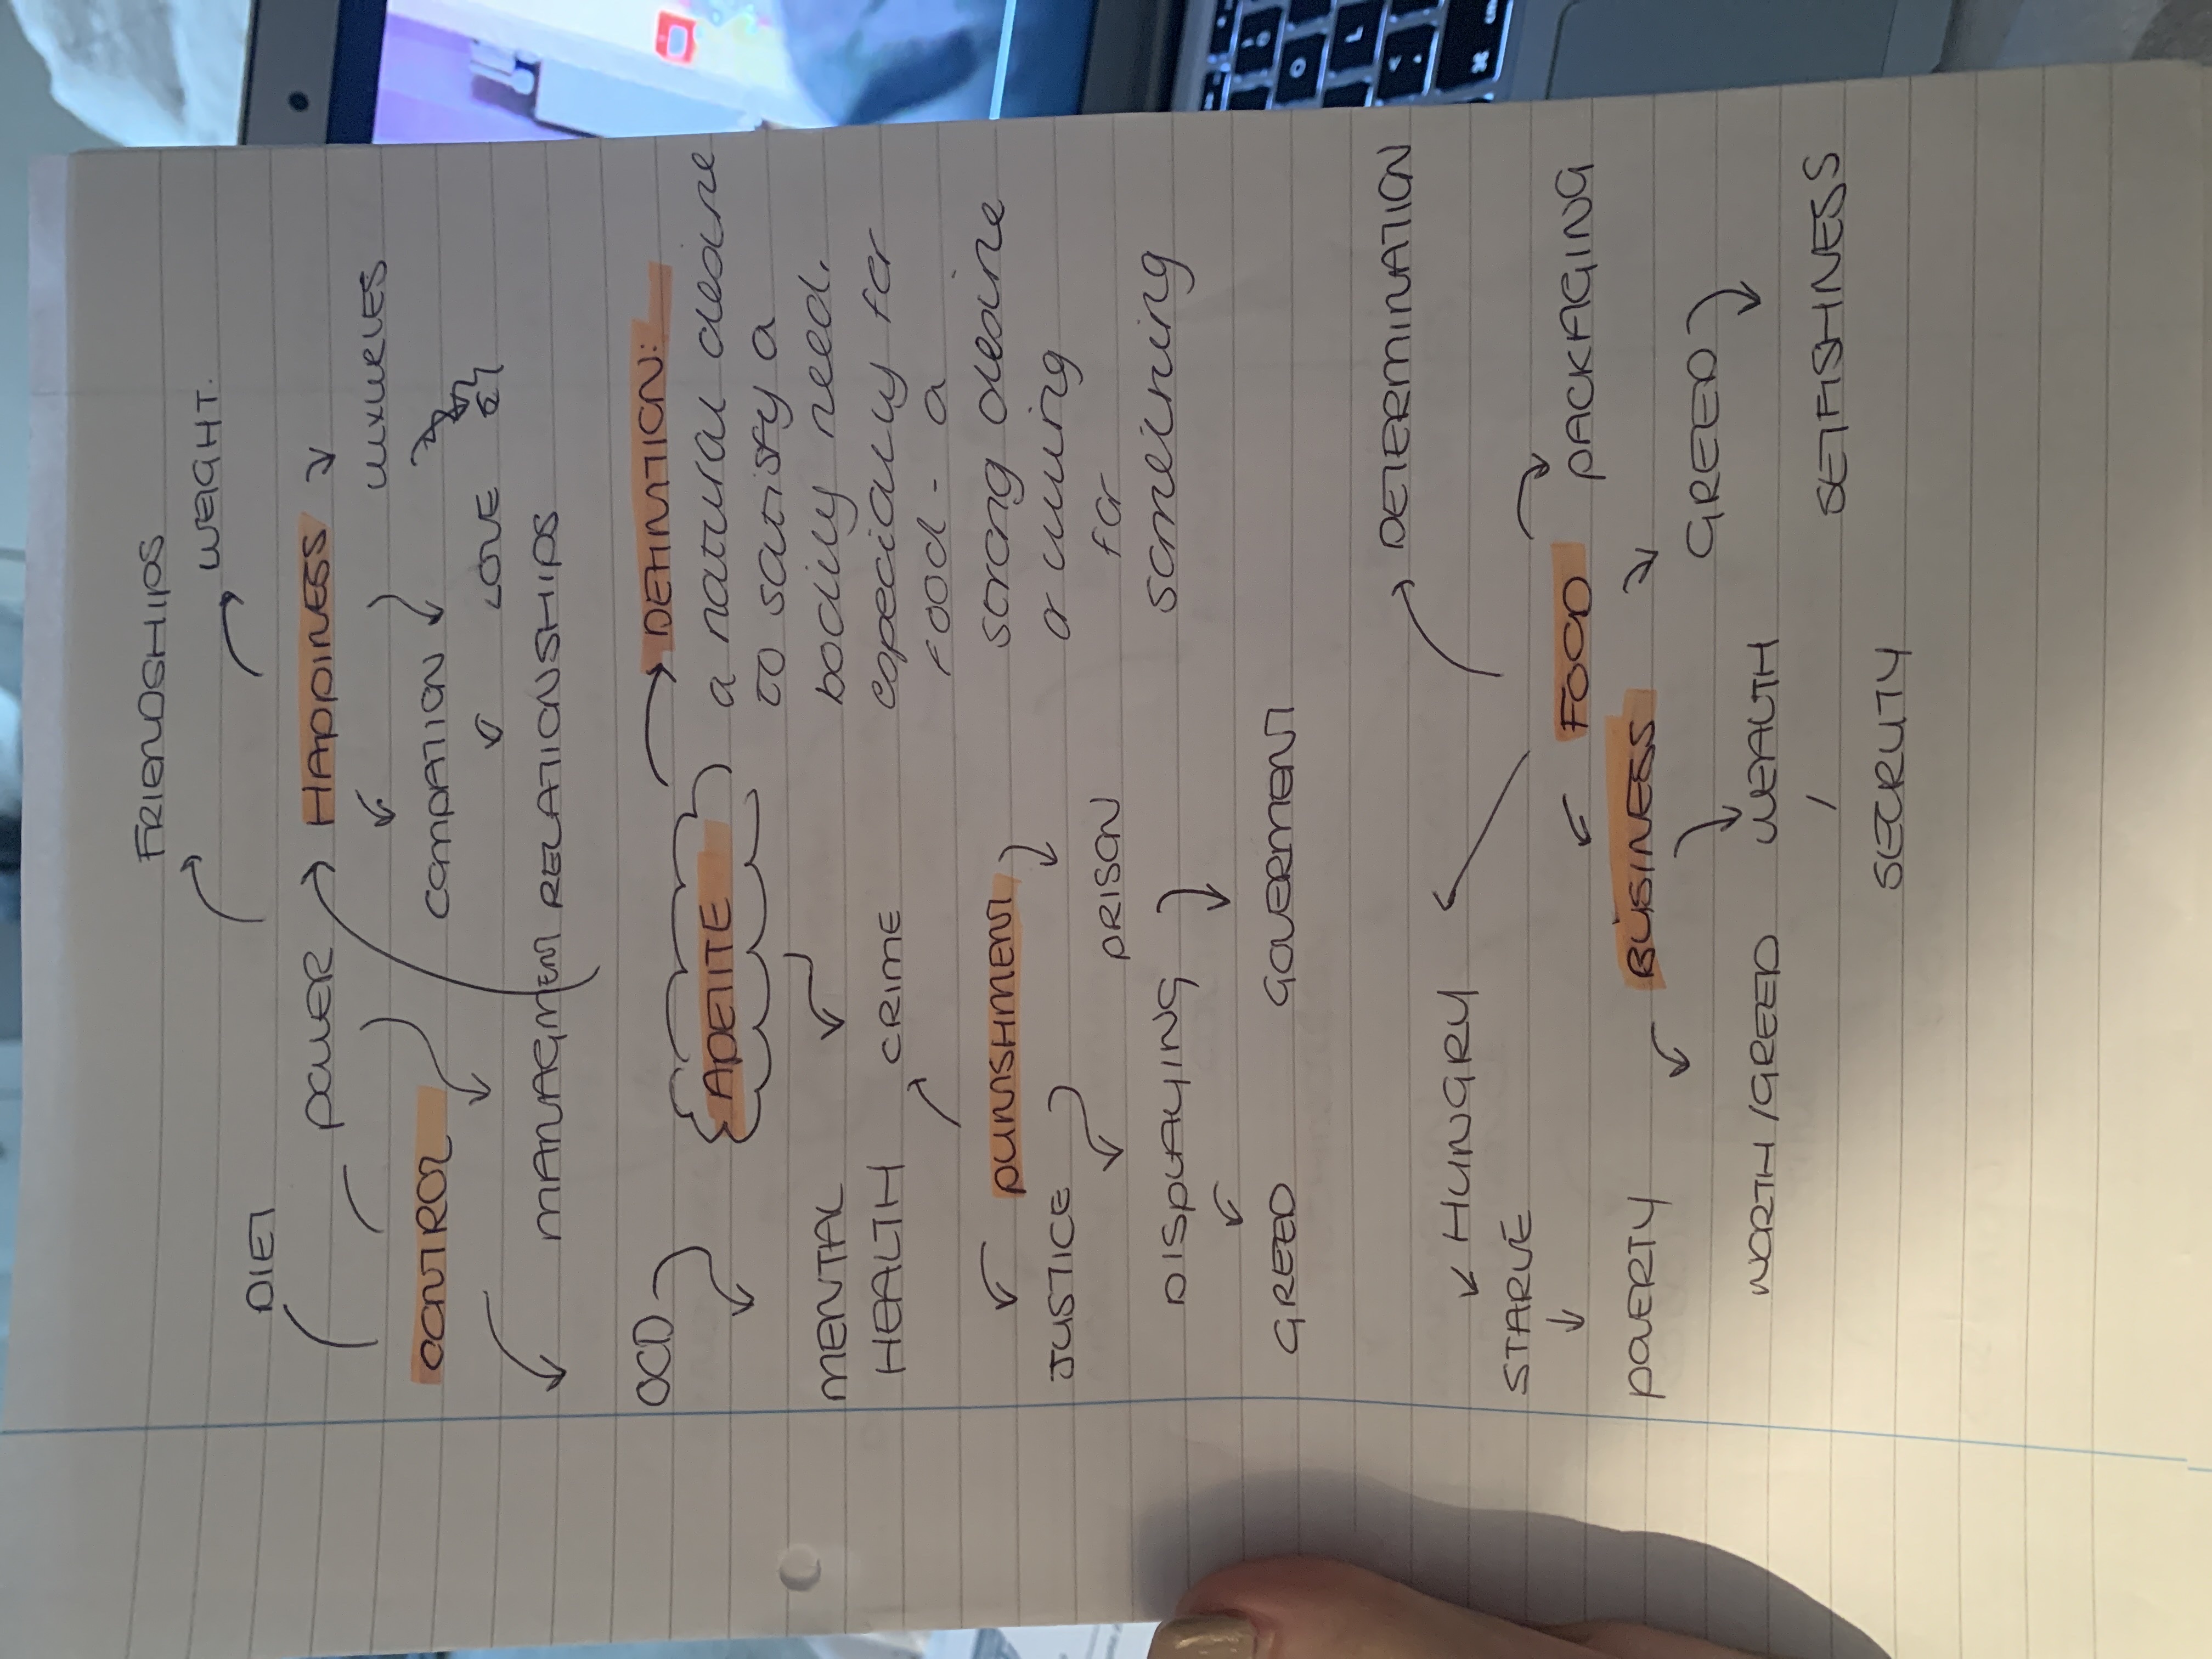 FRIENDSHIPS
WEIGHT.
DIET
POWER
HAPPINESS
LUXURIES
CONTROL
COMPATION
LOVE
MANAGMENT RELATIONSHIPS
OCD
DEFINITION:
APETITE
a natural desire
to satisfy a
bodily need.
especially for
food - a
strong desire
or liking
for
something
MENTAL
HEALTH
CRIME
PUNISHMENT
JUSTICE
PRISON
DISPLAYING
GREED
GOVERNMENT
DETERMINATION
HUNGRY
STARVE
FOOD
PACKAGING
POVERTY
BUSINESS
GREED
WORTH/GREED
WEALTH
SELFISHNESS
SECRUTY